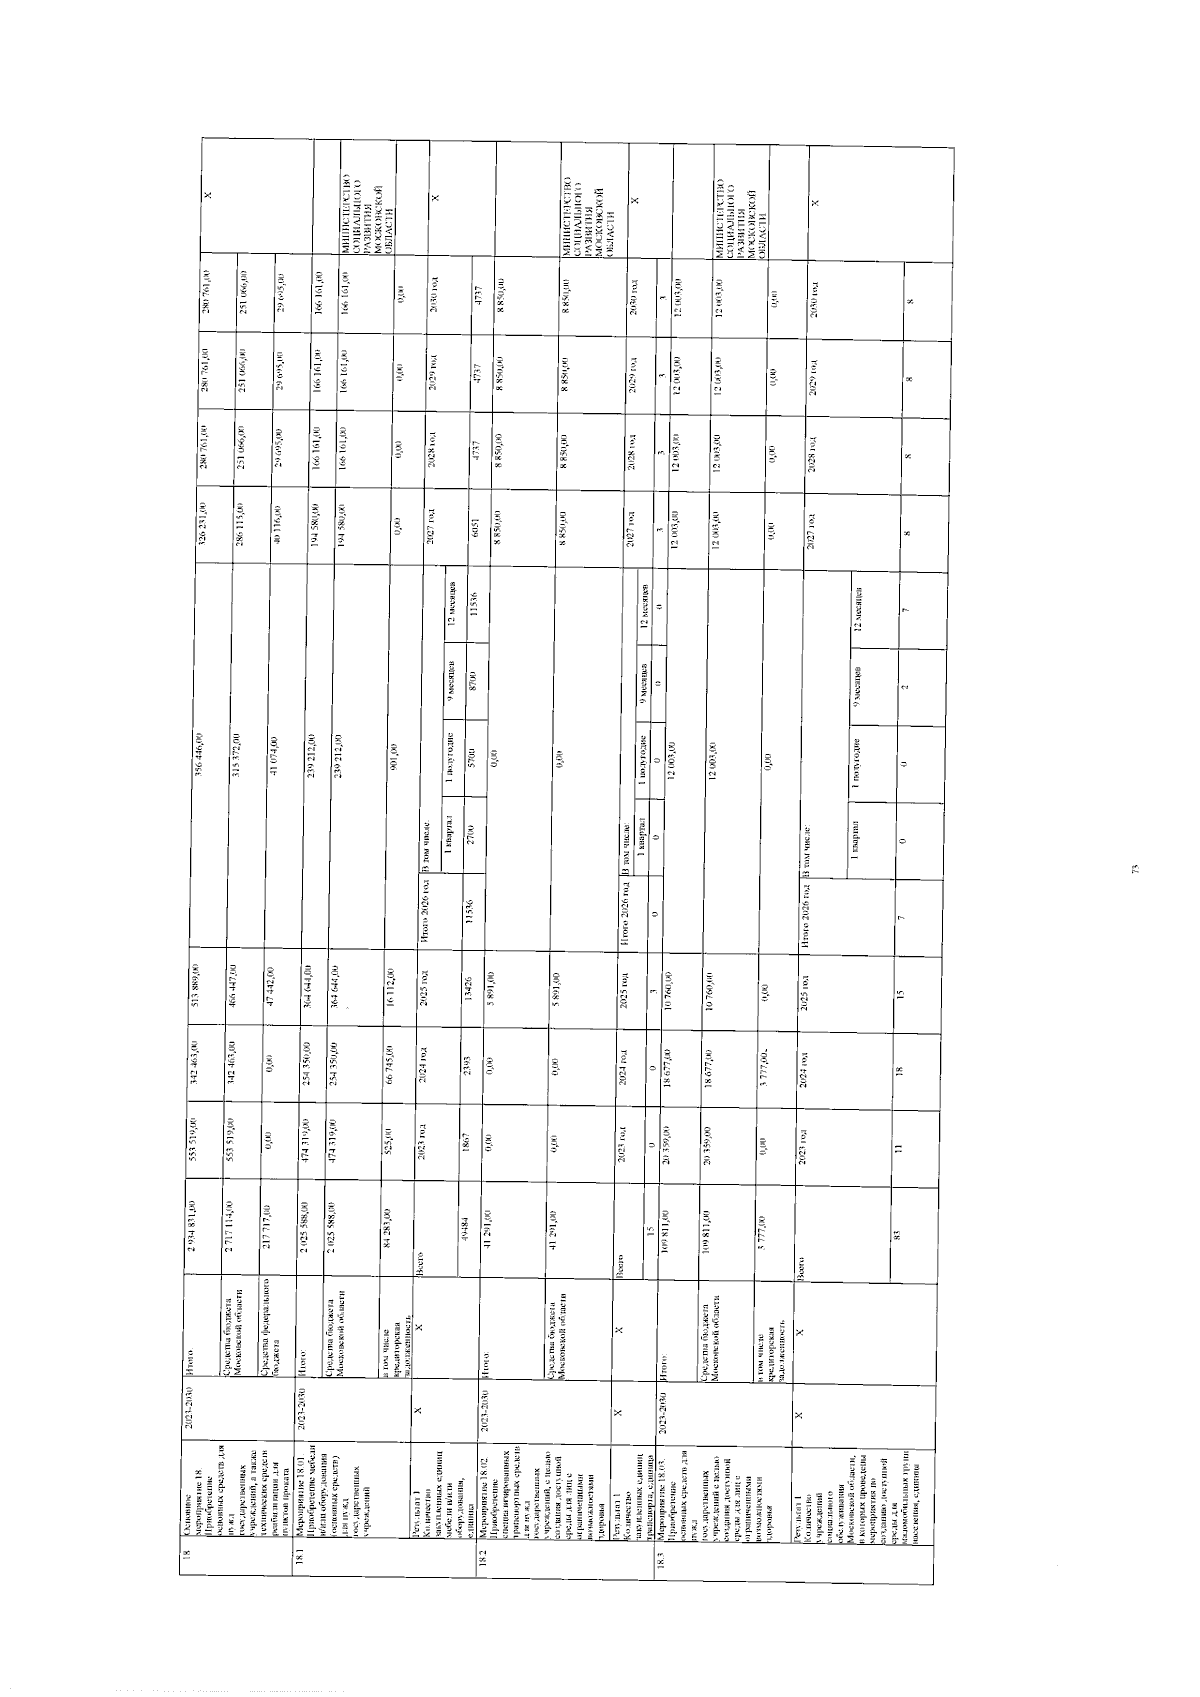 18
Основное
мероприятие 18
Приобретение
основных средств для
нужд
государственных
учреждений, а также
технических средств
реабилитации для
пунктов проката
2023-2030
Итого
2 934 831,00
553 519,00
342 463,00
513 889,00
356 446,00
326 231,00
280 761,00
280 761,00
280 761,00
X
Средства бюджета
Московской области
2 717 114,00
553 519,00
342 463,00
466 447,00
315 372,00
286 115,00
251 066,00
251 066,00
251 066,00
Средства федерального
бюджета
217 717,00
0,00
0,00
47 442,00
41 074,00
40 116,00
29 695,00
29 695,00
29 695,00
18.1
Мероприятие 18.01.
Приобретение мебели
и(или) оборудования
(основных средств)
для нужд
государственных
учреждений
2023-2030
Итого:
2 025 588,00
474 319,00
254 350,00
364 644,00
239 212,00
194 580,00
166 161,00
166 161,00
166 161,00
Средства бюджета
Московской области
2 025 588,00
474 319,00
254 350,00
364 644,00
239 212,00
194 580,00
166 161,00
166 161,00
166 161,00
МИНИСТЕРСТВО
СОЦИАЛЬНОГО
РАЗВИТИЯ
МОСКОВСКОЙ
ОБЛАСТИ
в том числе
кредиторская
задолженность
84 283,00
525,00
66 745,00
16 112,00
901,00
0,00
0,00
0,00
0,00
Результат 1
Количество
закупленных единиц
мебели и(или)
оборудования,
единица
X
X
Всего
2023 год
2024 год
2025 год
Итого 2026 год
В том числе:
2027 год
2028 год
2029 год
2030 год
X
1 квартал
1 полугодие
9 месяцев
12 месяцев
49484
1867
2393
13426
11536
2700
5700
8700
11536
6051
4737
4737
4737
18.2
Мероприятие 18.02.
Приобретение
специализированных
транспортных средств
для нужд
государственных
учреждений, с целью
создания доступной
среды для лиц с
ограниченными
возможностями
здоровья
2023-2030
Итого:
41 291,00
0,00
0,00
5 891,00
0,00
8 850,00
8 850,00
8 850,00
8 850,00
Средства бюджета
Московской области
41 291,00
0,00
0,00
5 891,00
0,00
8 850,00
8 850,00
8 850,00
8 850,00
МИНИСТЕРСТВО
СОЦИАЛЬНОГО
РАЗВИТИЯ
МОСКОВСКОЙ
ОБЛАСТИ
Результат 1
Количество
закупленных единиц
транспорта, единица
X
X
Всего
2023 год
2024 год
2025 год
Итого 2026 год
В том числе:
2027 год
2028 год
2029 год
2030 год
X
1 квартал
1 полугодие
9 месяцев
12 месяцев
15
0
0
3
0
0
0
0
0
3
3
3
3
18.3
Мероприятие 18.03.
Приобретение
основных средств для
нужд
государственных
учреждений с целью
создания доступной
среды для лиц с
ограниченными
возможностями
здоровья
2023-2030
Итого:
109 811,00
20 359,00
18 677,00
10 760,00
12 003,00
12 003,00
12 003,00
12 003,00
12 003,00
Средства бюджета
Московской области
109 811,00
20 359,00
18 677,00
10 760,00
12 003,00
12 003,00
12 003,00
12 003,00
12 003,00
МИНИСТЕРСТВО
СОЦИАЛЬНОГО
РАЗВИТИЯ
МОСКОВСКОЙ
ОБЛАСТИ
в том числе
кредиторская
задолженность
3 777,00
0,00
3 777,00
0,00
0,00
0,00
0,00
0,00
0,00
Результат 1
Количество
учреждений
социального
обслуживания
Московской области,
в которых проведены
мероприятия по
созданию доступной
среды для
маломобильных групп
населения, единица
X
X
Всего
2023 год
2024 год
2025 год
Итого 2026 год
В том числе:
2027 год
2028 год
2029 год
2030 год
X
1 квартал
1 полугодие
9 месяцев
12 месяцев
83
11
18
15
7
0
0
2
7
8
8
8
8
73